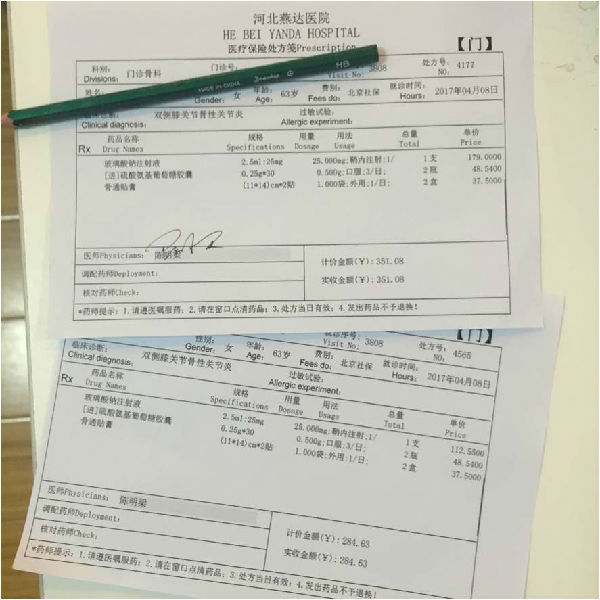 河北燕达医院
HE BEI YANDA HOSPITAL
医疗保险处方笺Prescription 【门】
科别: 门诊骨科 门诊号: 3808 处方号: 4177
Divisions: Visit No: NO:
MADE IN CHINA HB
姓名: 女 年龄: 63岁 费别: 北京社保 就诊时间: 2017年04月08日
Gender: Age: Fees do: Hours:
临床诊断: 双侧膝关节骨性关节炎 过敏试验:
Clinical diagnosis: Allergic experiment:
Rx 药品名称 规格 用量 用法 总量 单价
Drug Names Specifications Dosage Usage Total Price
玻璃酸钠注射液 2.5ml:25mg 25.000mg;鞘内注射;1/ 1支 179.0000
[进]硫酸氨基葡萄糖胶囊 0.25g*30 0.500g;口服;3/日; 2瓶 48.5400
骨通贴膏 (11*14)cm*2贴 1.000袋;外用;1/日; 2盒 37.5000
医师Physicians: 陈明梁 计价金额(¥):351.08
调配药师Deployment: 实收金额(¥):351.08
核对药师Check:
*药师提示:1.请遵医嘱服药;2.请在窗口点清药品;3.处方当日有效;4.发出药品不予退换!
【门】
性别: 女 年龄: 63岁 费别: 北京社保 就诊序号: 3808 就诊时间: 2017年04月08日 处方号: 4565
Gender: Age: Fees do: Visit No: Hours: NO:
临床诊断: 双侧膝关节骨性关节炎 过敏试验:
Clinical diagnosis: Allergic experiment:
Rx 药品名称 规格 用量 用法 总量 单价
Drug Names Specifications Dosage Usage Total Price
玻璃酸钠注射液 2.5ml:25mg 25.000mg;鞘内注射;1/ 1支 112.5500
[进]硫酸氨基葡萄糖胶囊 0.25g*30 0.500g;口服;3/日; 2瓶 48.5400
骨通贴膏 (11*14)cm*2贴 1.000袋;外用;1/日; 2盒 37.5000
医师Physicians: 陈明梁 计价金额(¥):284.63
调配药师Deployment: 实收金额(¥):284.63
核对药师Check:
*药师提示:1.请遵医嘱服药;2.请在窗口点清药品;3.处方当日有效;4.发出药品不予退换!